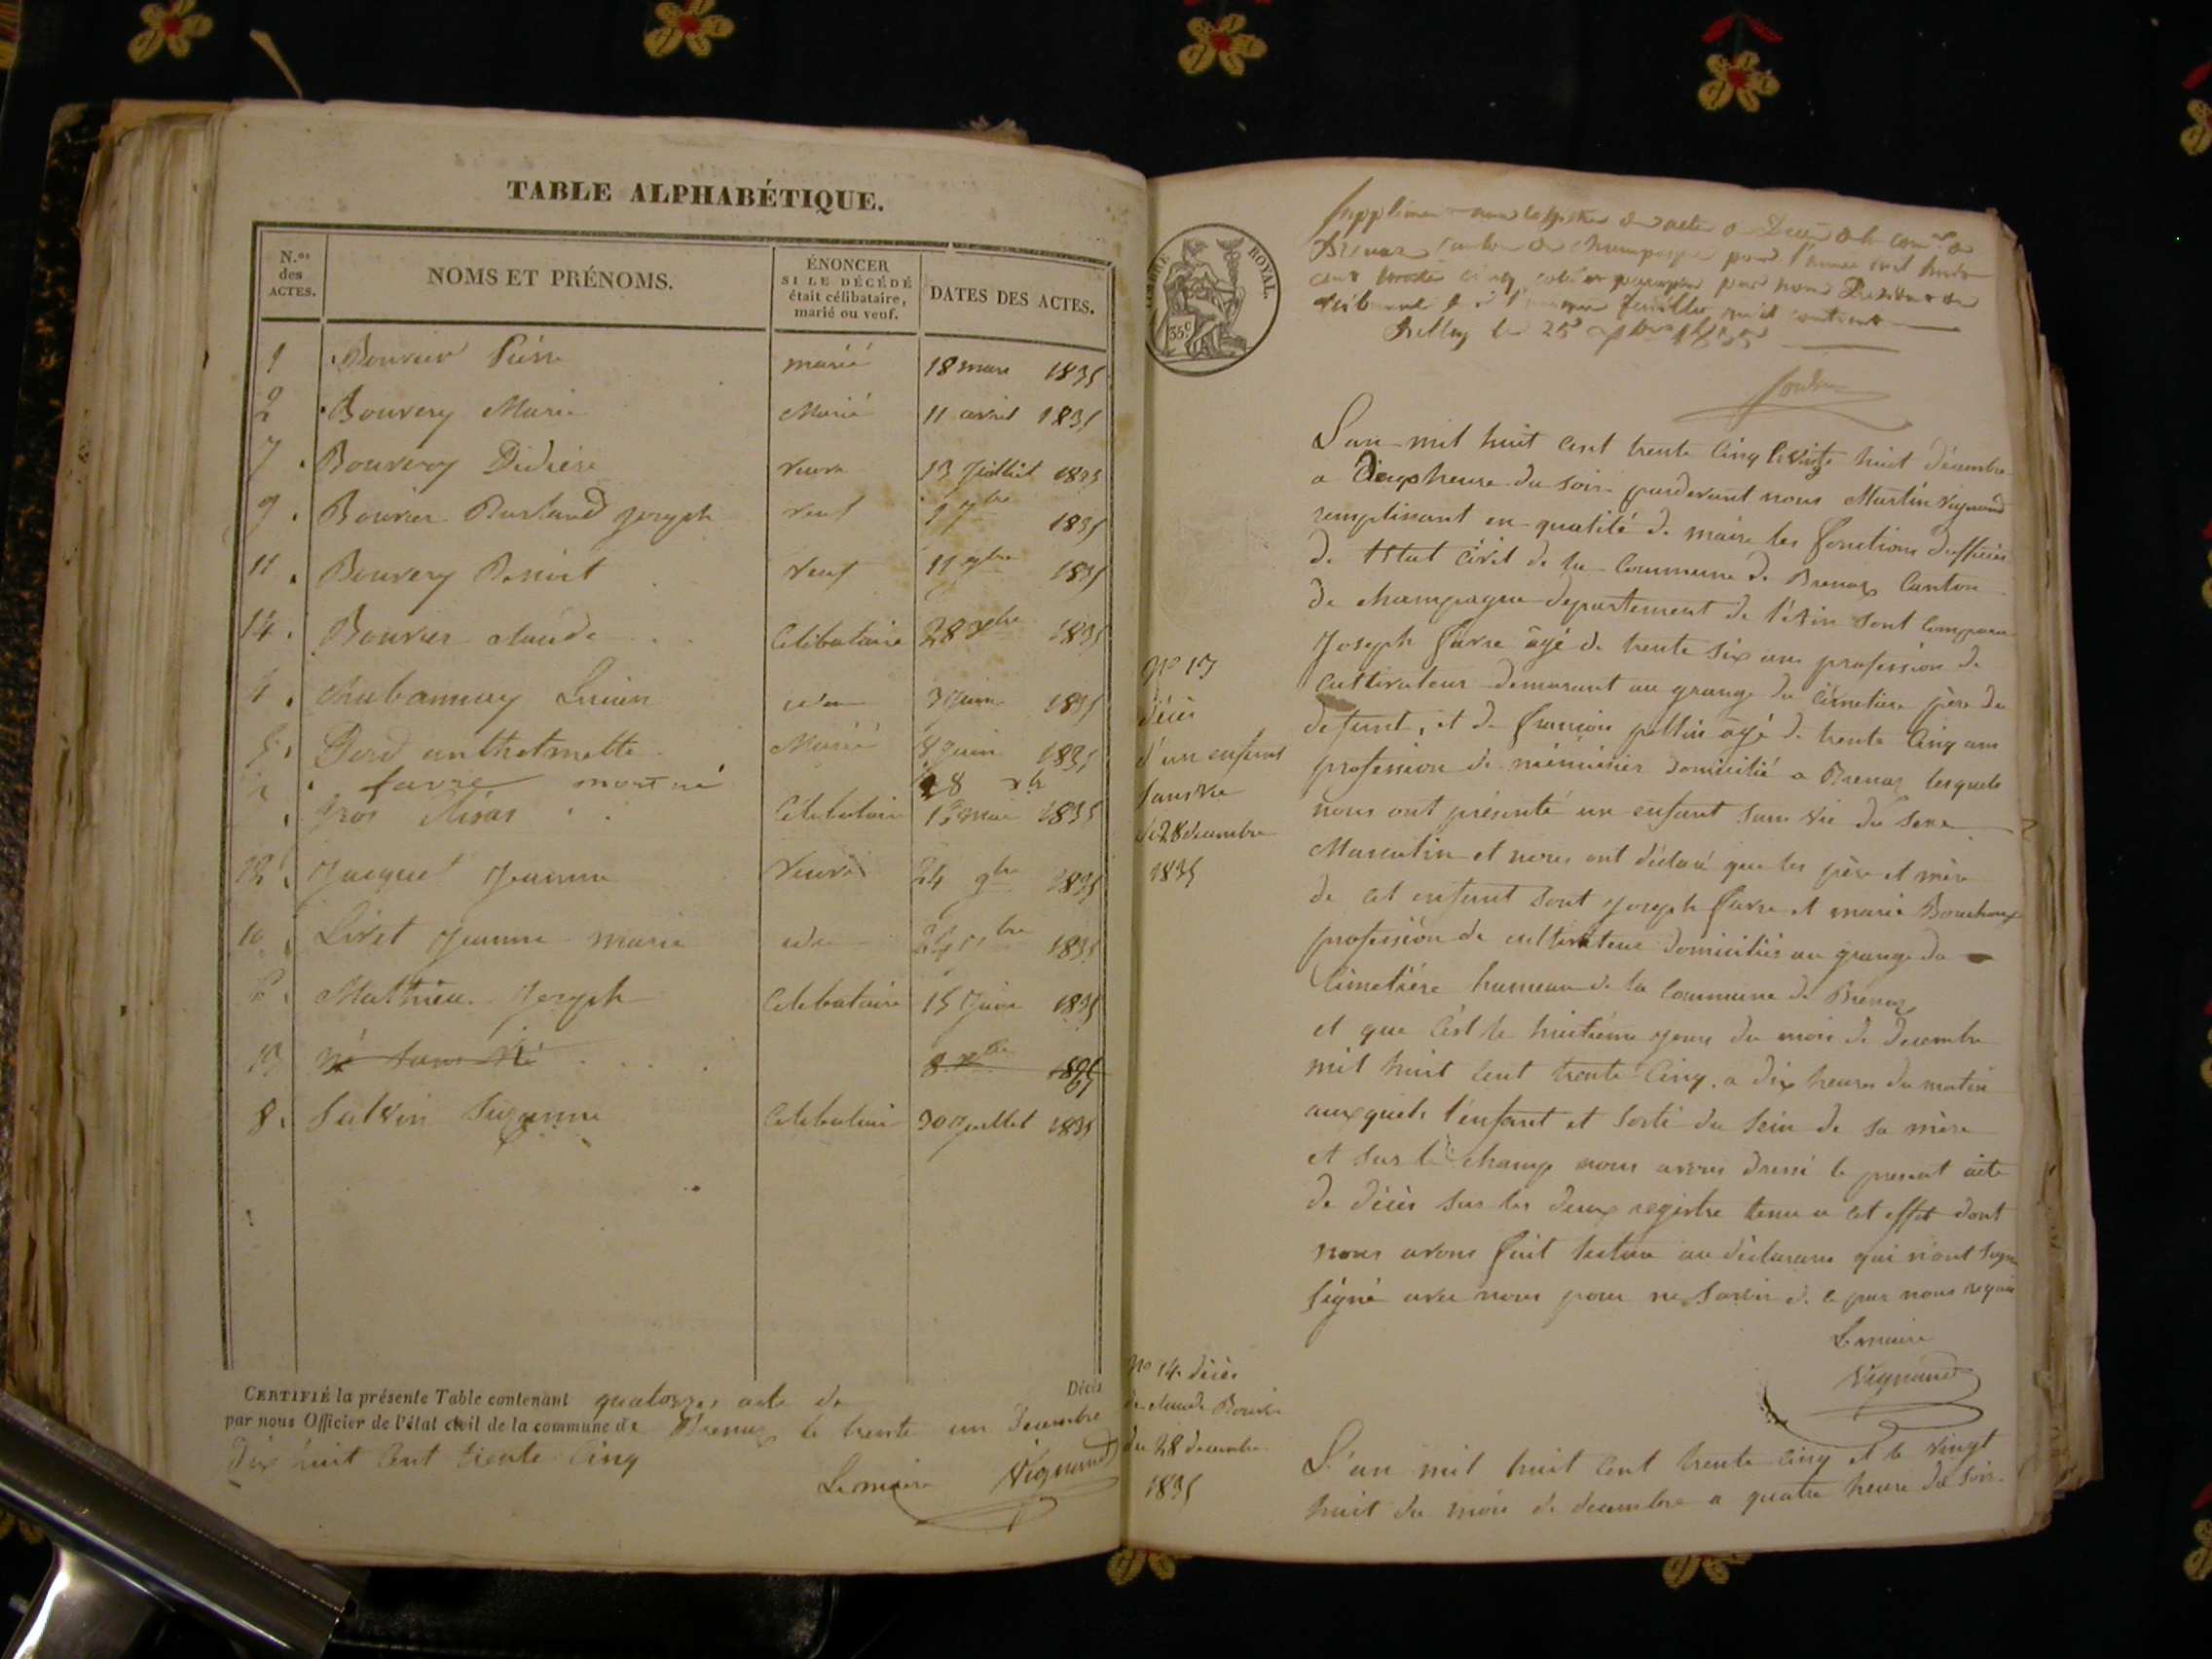 TABLE ALPHABÉTIQUE.
N.os des ACTES.
NOMS ET PRÉNOMS.
ÉNONCER
SI LE DÉCÉDÉ
était célibataire,
marié ou veuf.
DATES DES ACTES.
1 Bouvier Pierre marié 18 mars 1835
2 Bouvery Marie Marié 11 avril 1835
7 Bouveroy Didière veuve 13 Juillet 1835
9 Bouvier Rustand joseph veuf 9 7bre 1835
11 Bouvery Benoit veuf 11 9bre 1835
14 Bouvier claude Celibataire 28 xbre 1835
4 Chabannay Lucien idem 3 Juin 1835
5 anthelmette Mariée 8 Juin 1835
favre mort né 28 xb
gros Célibataire 15 mai 1835
12 Jacquet Jeanne Veuve 24 9bre 1835
10 Livet Jeanne marie idem 1835
6 Mathieu Joseph Celibataire 15 Juin 1835
13 né sans vie 8 xbre
8 Salvin Suzanne Celibataire 30 Juillet 1835
CERTIFIÉ la présente Table contenant quatorzes acte de Décès
par nous Officier de l'état civil de la commune de Brenaz le trente un Decembre
Dix huit Cent trente Cinq
Le maire Vignand
TIMBRE ROYAL.
35c
Supplément registre des actes de Décès de la comne de
Brenaz canton de champagne pour l'année mil huit
cent trente cinq coté et paraphé par nous Président du
tribunal feuillet
Belley le 25 1835
L'an mil huit cent trente Cinq le vingt huit décembre
a Cinq heure du soir pardevant nous Martin Vignand
remplissant en qualité de maire les fonctions dofficier
de l'Etat Civil de la Commune de Brenaz Canton
de champagne departement de l'Ain sont comparu
Joseph favre âgé de trente six ans profession de
Cultivateur demeurant au grange du Cimetière père du
defunt, et de françois pottin âgé de trente Cinq ans
profession de ménuisier domicilié a Brenaz lesquels
nous ont présenté un enfant sans vie du sexe
Masculin et nous ont déclaré que les père et mère
de cet enfant sont joseph favre et marie Bouchoux
profession de cultivateur domiciliés au grange du
Cimetière hameau de la Commune de Brenaz
et que c'est le huitième jour du mois de decembre
mil huit cent trente Cinq a dix heures du matin
auxquels l'enfant et sorti du sein de sa mère
et sur le champ nous avons dressé le present acte
de décès sur les deux registre tenu a cet effet dont
nous avons fait lecture au déclarans qui n'ont
signé avec nous pour ne savoir de ce par nous requis
Le maire
Vignand
No 13
décès
d'un enfant
sans vie
du 28 decembre
1835
No 14 décès
de claude Bouvier
du 28 decembre
1835
L'an mil huit cent trente Cinq et le vingt
huit du mois de decembre a quatre heure du soir